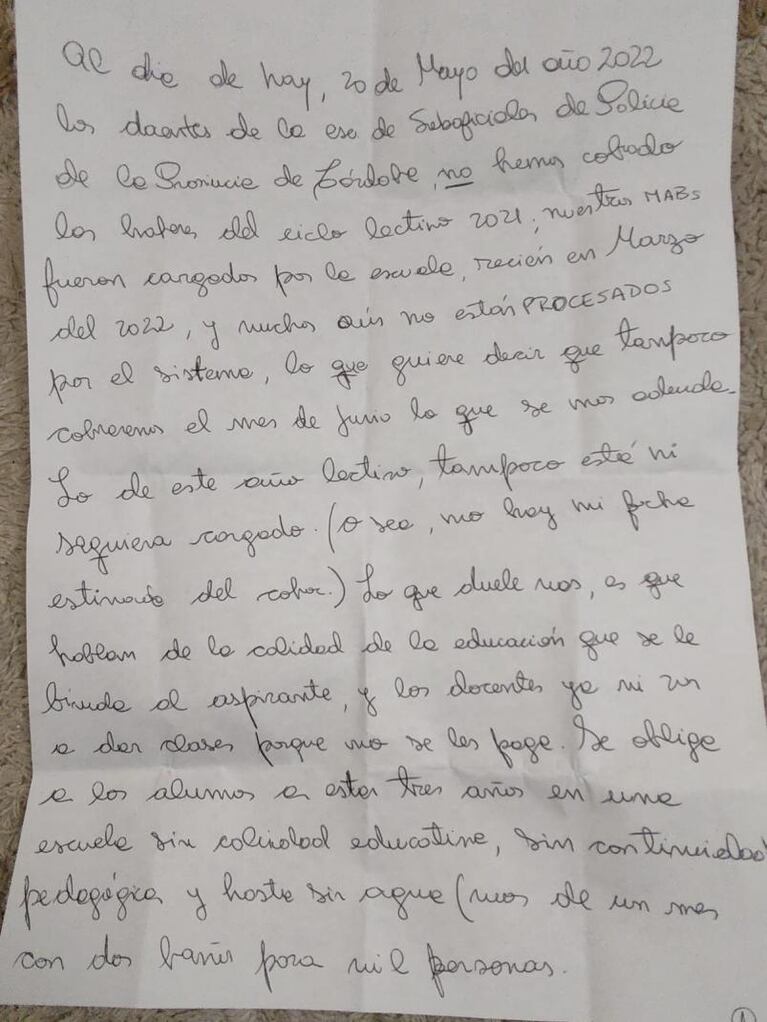 Al día de hoy, 20 de Mayo del año 2022
los docentes de la esc de Suboficiales de Policía
de la Provincia de Córdoba, no hemos cobrado
los haberes del ciclo lectivo 2021; nuestros MABs
fueron cargados por la escuela, recién en Marzo
del 2022, y muchos aún no están PROCESADOS
por el sistema, lo que quiere decir que tampoco
cobraremos el mes de Junio lo que se nos adeuda.
Lo de este año lectivo, tampoco está ni
siquiera cargado. (O sea, no hay ni fecha
del cobro.) Lo que duele más, es que
hablan de la calidad de la educación que se le
brinda al aspirante, y los docentes ya ni van
a dar clases porque no se les paga. Se obliga
a los alumnos a estar tres años en una
escuela sin calidad educativa, sin continuidad
pedagógica y hasta sin agua (más de un mes
con dos baños para mil personas.
1